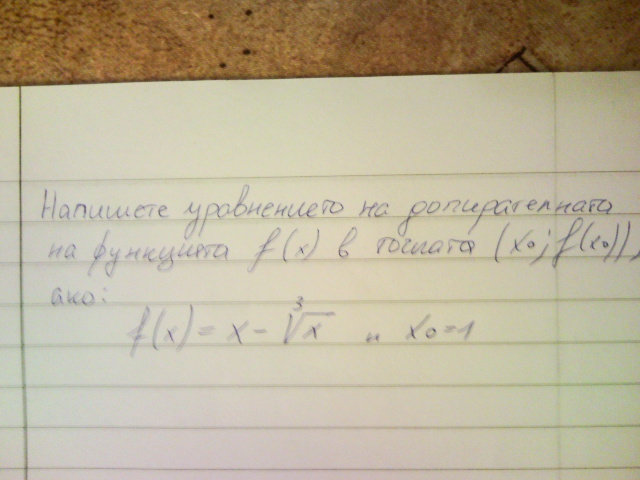 Напишете уравнението на допирателната
на функцията f(x) в точката (x₀; f(x₀)),
ако:
f(x) = x - ∛x и x₀=1